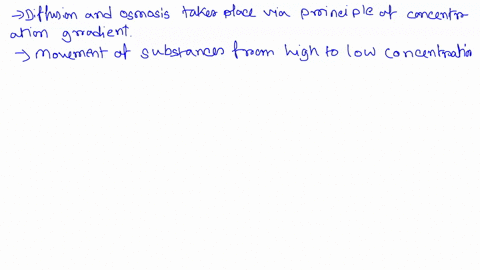 →Diffusion and osmosis takes place via principle of concentr-
ation gradient.
→ Movement of substances from high to low concentration